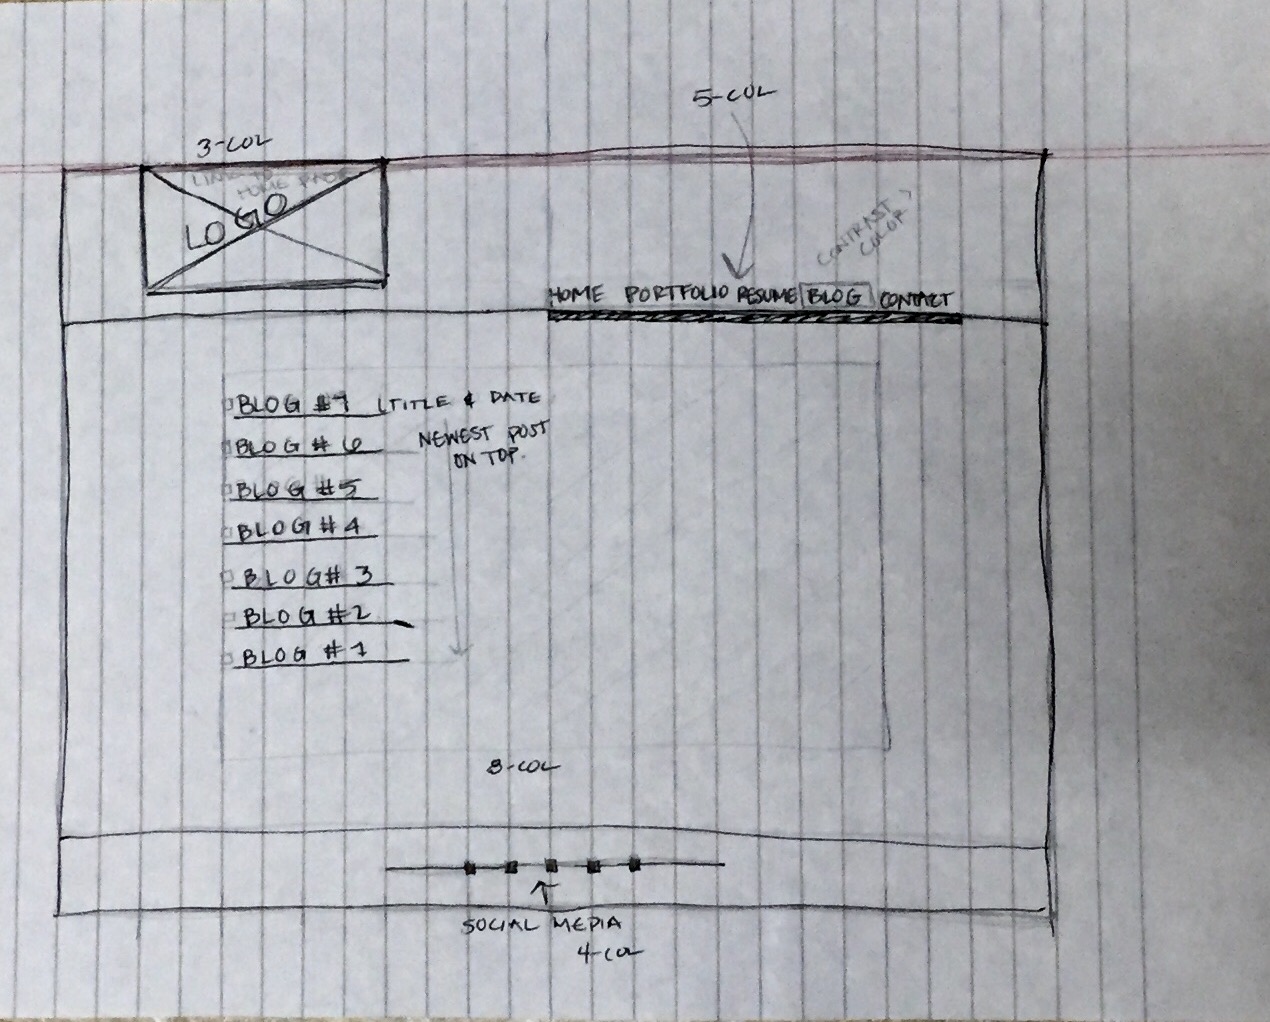 5-COL
3-COL
LINKS TO
HOME PAGE
LOGO
CONTRAST
COLOR
HOME PORTFOLIO RESUME BLOG CONTACT
BLOG #7 (TITLE & DATE
BLOG #6 NEWEST POST
ON TOP.
BLOG #5
BLOG #4
BLOG #3
BLOG #2
BLOG #1
8-COL
SOCIAL MEDIA
4-COL